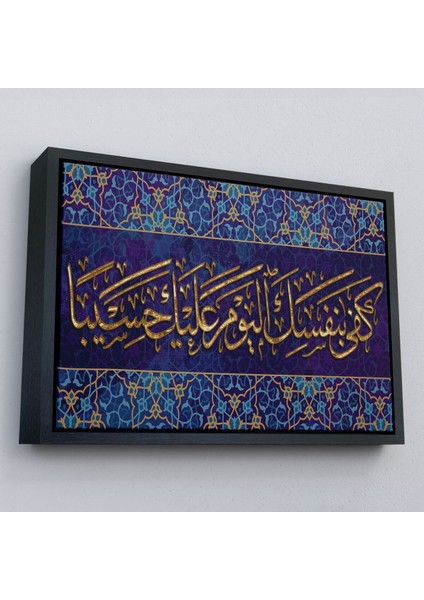 كفى بنفسك اليوم عليك حسيبا